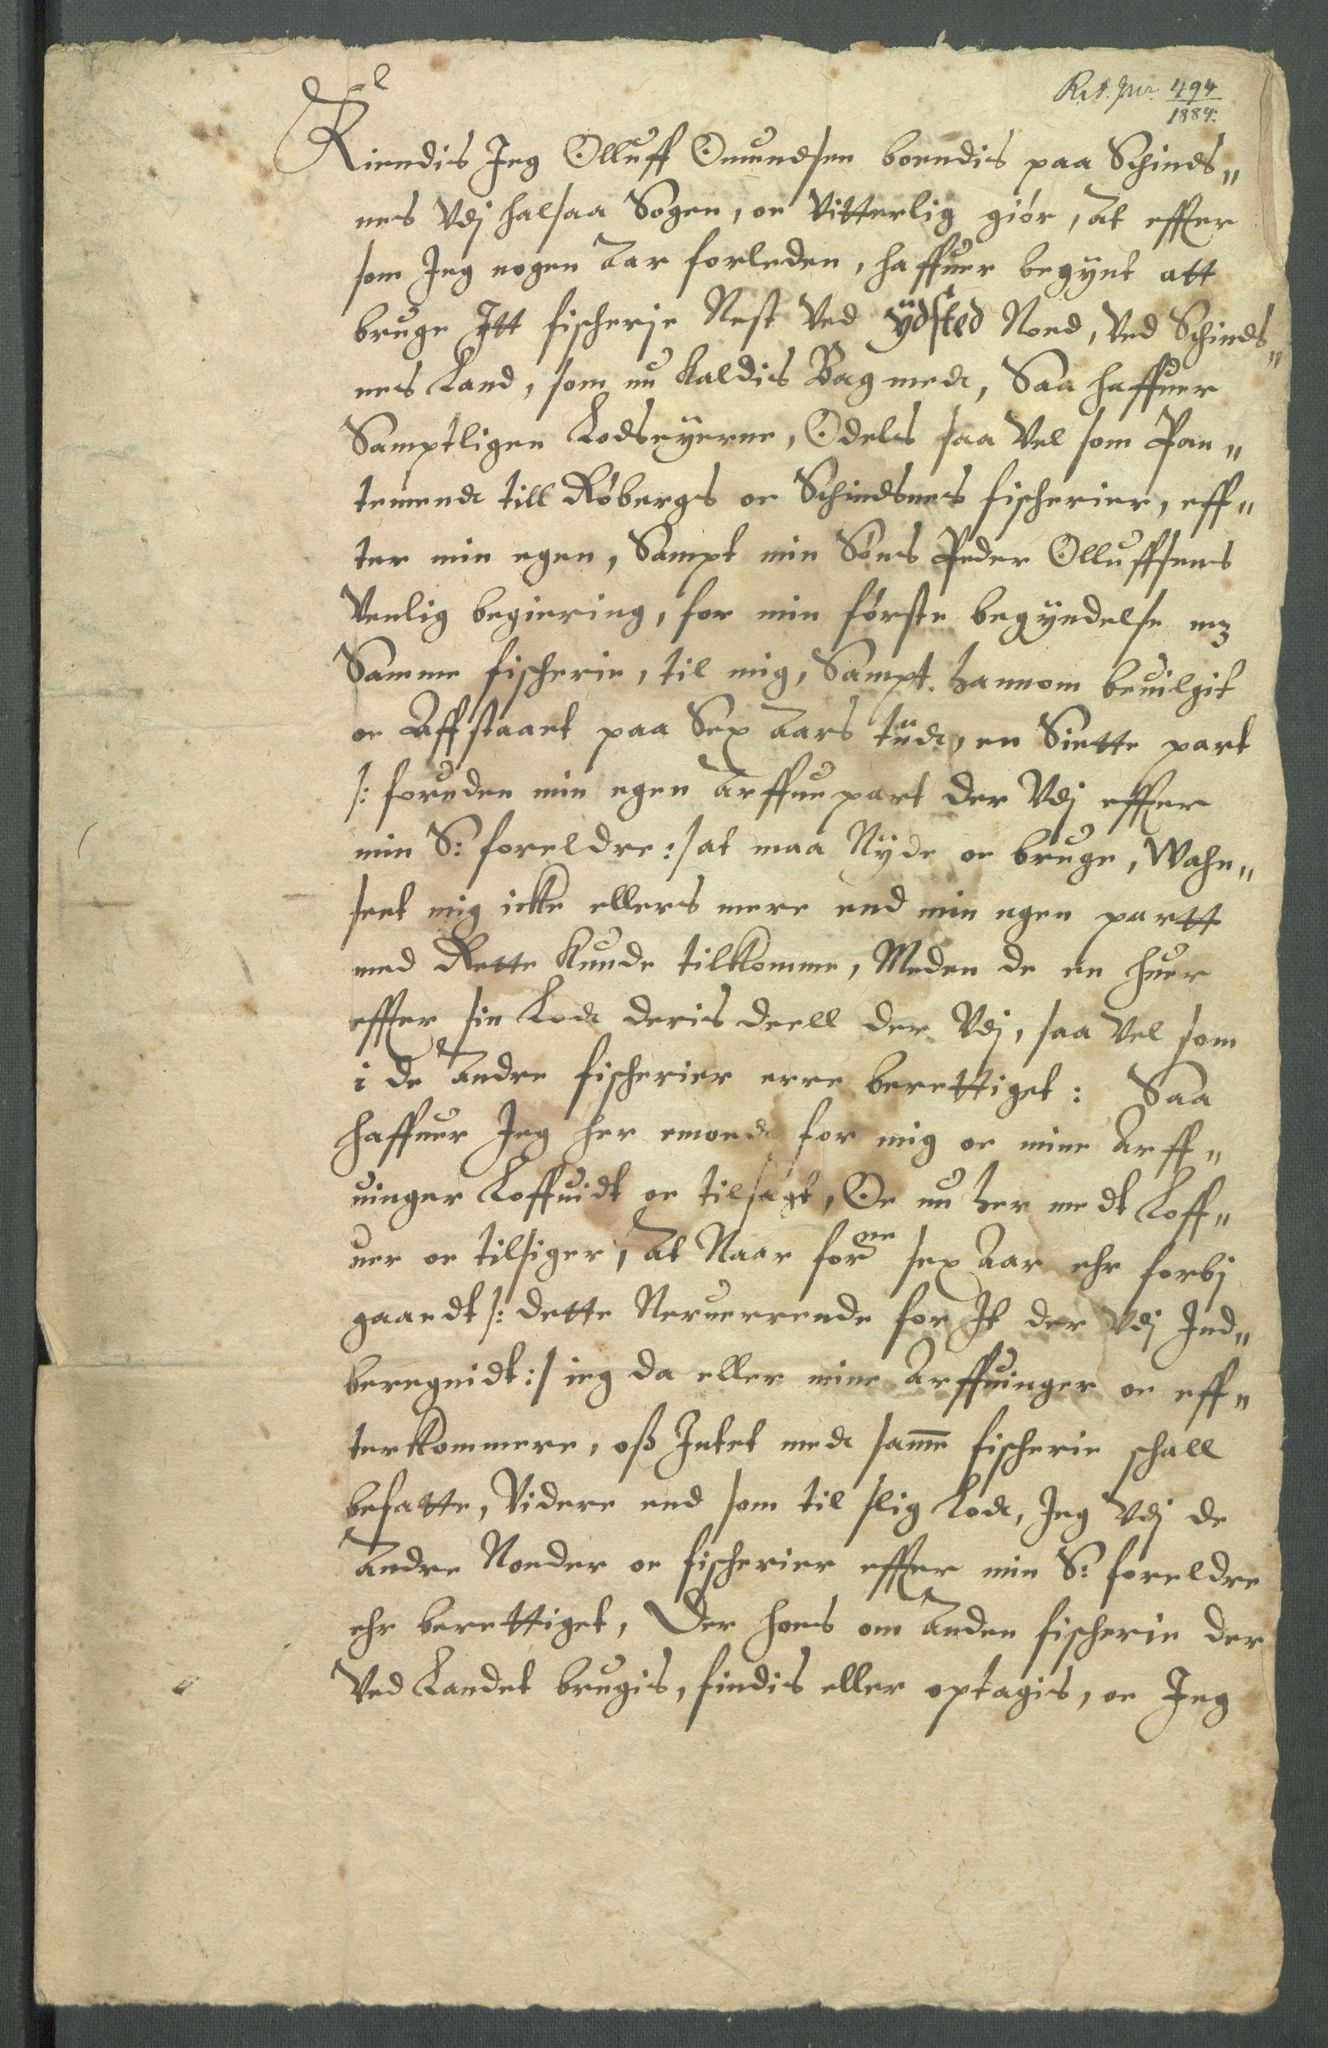 R.A. Jnr. 494
1884.
Kiendis Jeg Olluff Omundsen boendis paa Schinds„
nes Vdj halsaa Sogen, oc Vitterlig giör, At effter
som Jeg nogen Aar forleden, haffuer begynt att
bruge Itt fischerje Nest Ved ÿdsted Noed, Ved Schinds„
nes Land, som nu kaldis Bagmedt, Saa haffuer
Samptligen Lodseyerne, Odels saa Vel som Pan„
temend till Röbergs oc Schindsnes fischerier, eff„
ter min egen, Sampt min Söns Peder Olluffsens
Venlig begiering, for min förste begyndelse mz
Samme fischerie, til mig, Sampt hannom beuilgit
oc Affstaaet paa Sex Aars tiidt, en Siette part
/: foruden min egen Arffuepart der Vdj effter
min S: foreldre :/ at maa Nyde oc bruge, Wahn„
seet mig icke ellers mere end min egen partt
med Rette kunde tilkomme, Meden de en huer
effter sin Lodt deris deell der Vdj, saa Vel som
i de Andre fischerier erre berettiget: Saa
haffuer Jeg her emodt for mig oc mine Arff„
uinger Loffuidt oc tilsagt, Oc nu her medt Loff„
uer oc tilsiger, At Naar forne sex Aar ehr forbj
gaaedt /: dette Neruerrende for It der Vdj Ind„
beregnidt :/ ieg da eller mine Arffuinger oc eff„
terkommere, oß Intet medt same fischerie schall
befatte, Videre end som til slig Lodt, Jeg Vdj de
Andre Noeder oc fischerier effter min S: foreldre
ehr berettiget, Der hoes om Anden fischerie der
Ved Landet brugis, findis eller optagis, oc Jeg